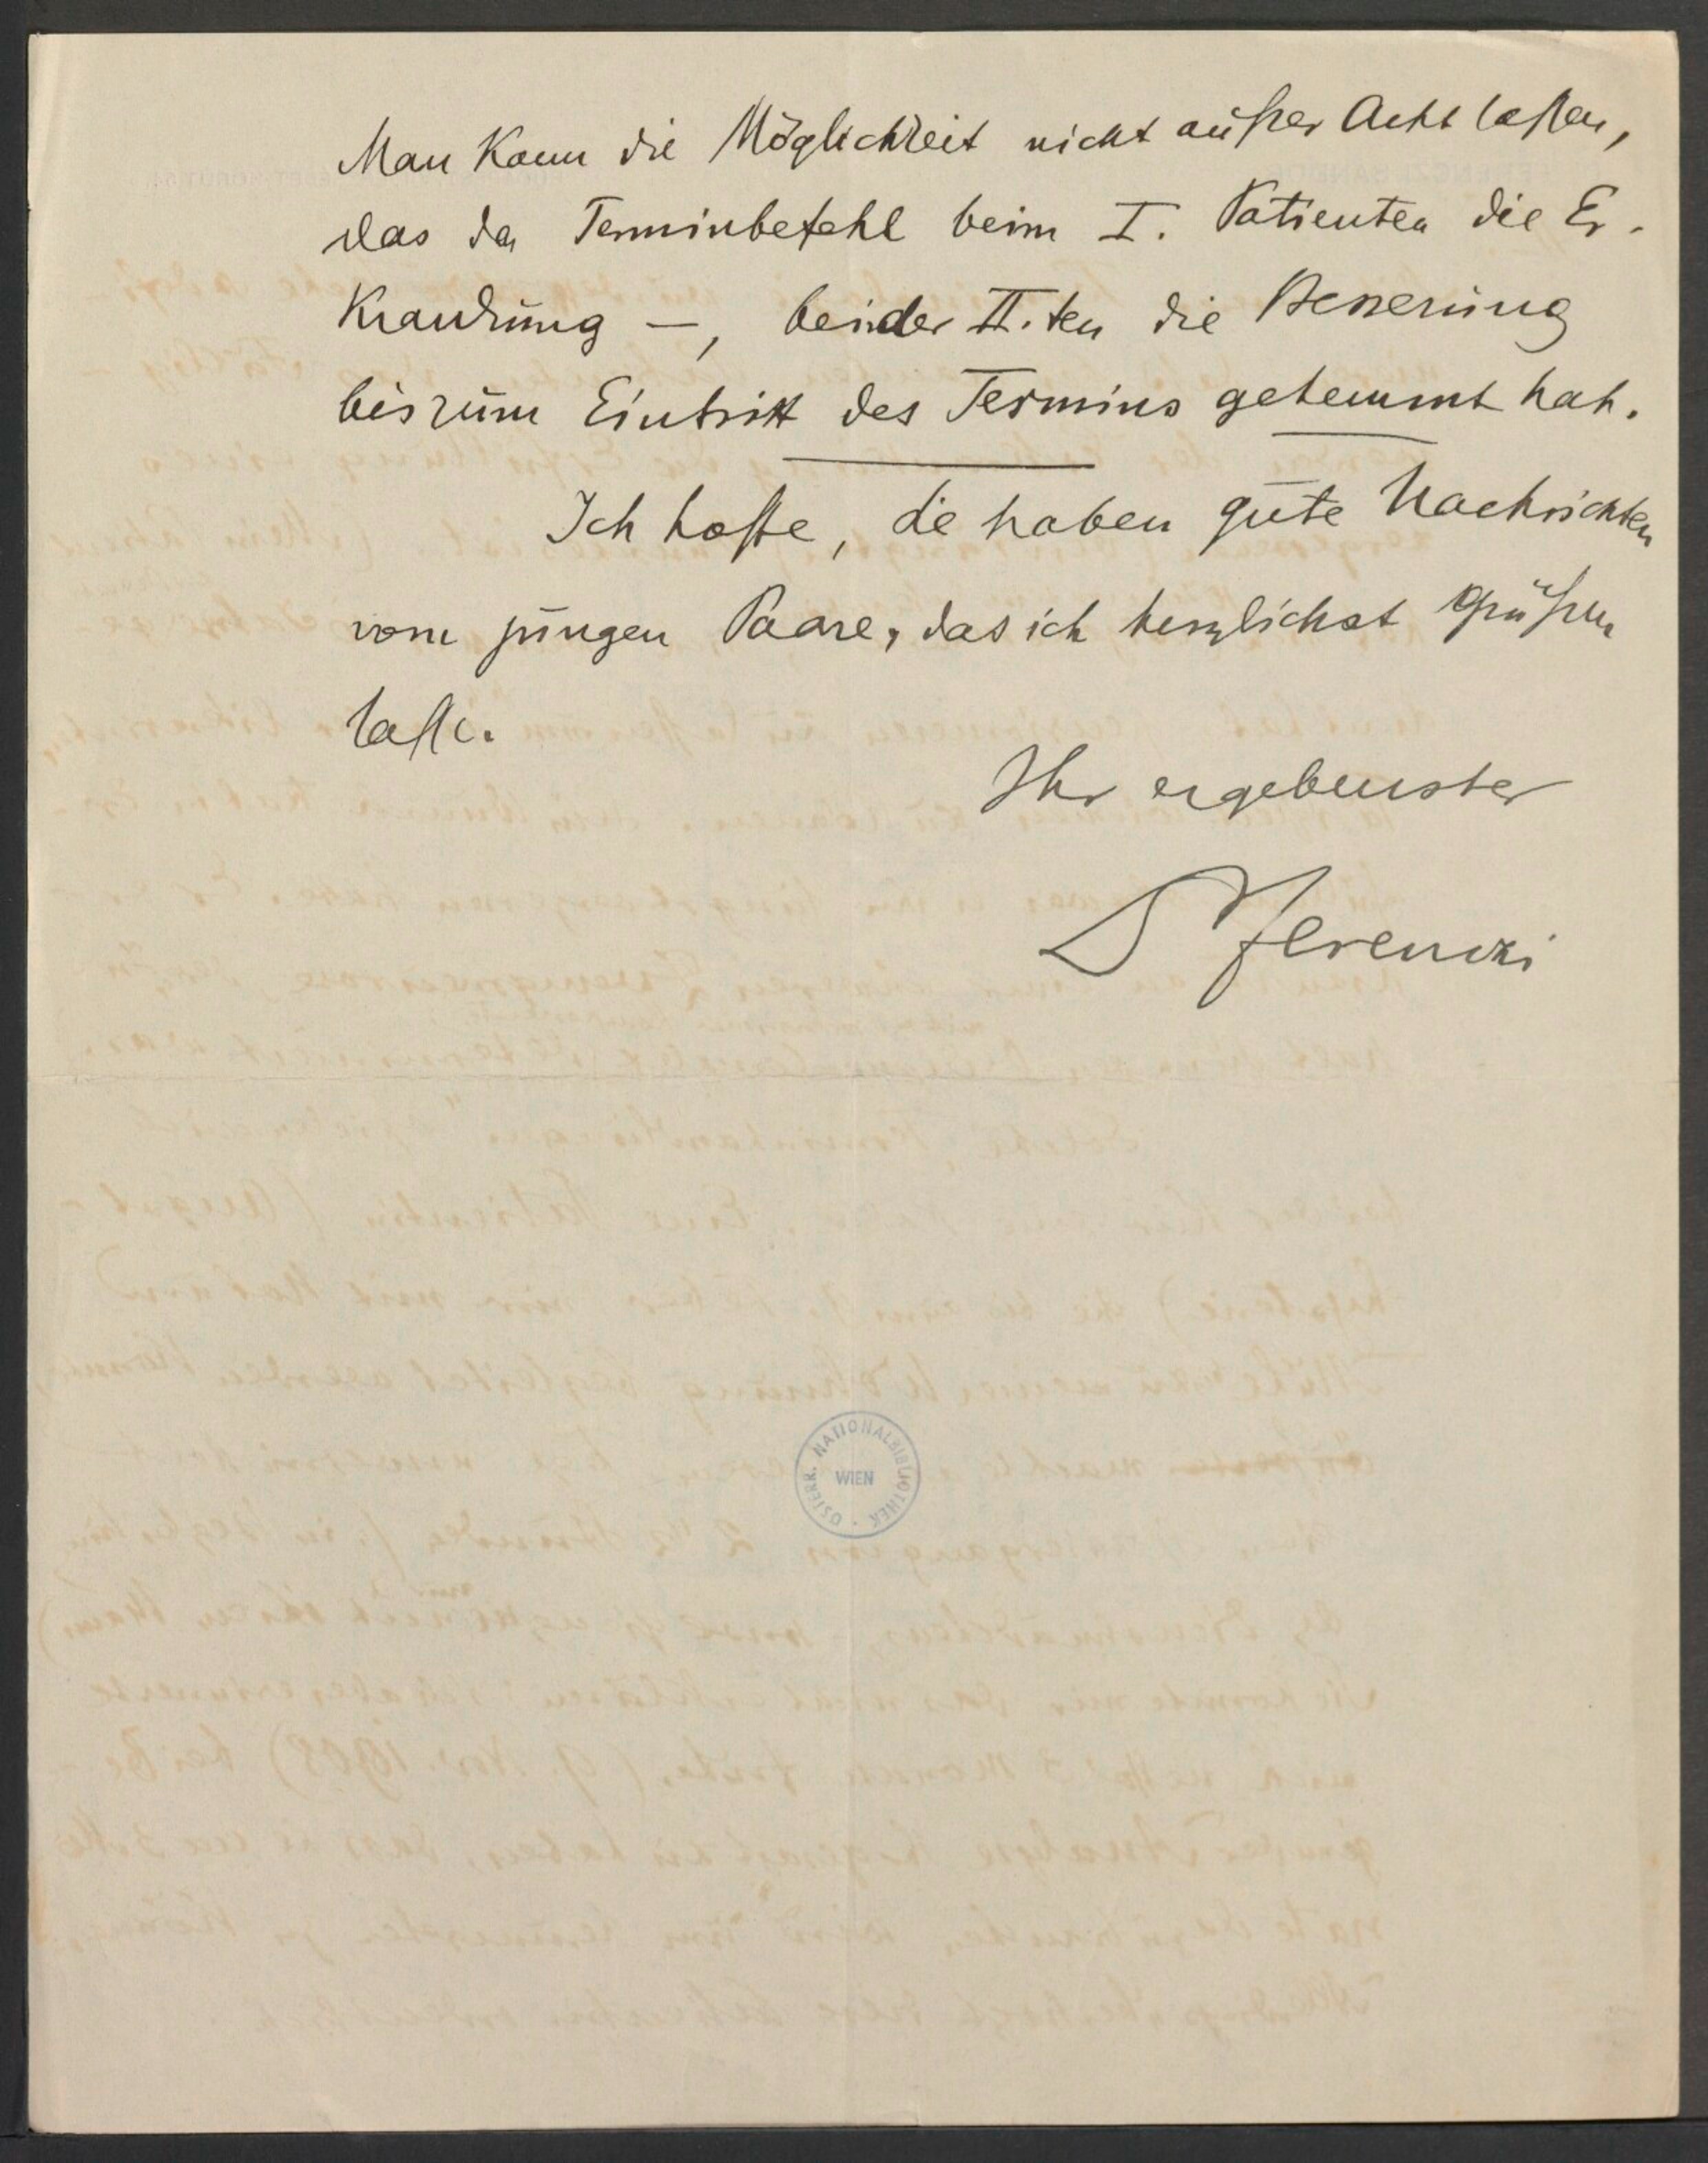 Man kann die Möglichkeit nicht außer Acht laßen,
das der Terminbefehl beim I. Patienten die Er-
krankung —, bei der II. ten die Besserung
bis zum Eintritt des Termins gehemmt hat.
Ich hoffe, Sie haben gute Nachrichten
vom jungen Paare, das ich herzlichst grüßen
lasse.
Ihr ergebenster
S Ferenczi
ÖSTERR. NATIONALBIBLIOTHEK
WIEN